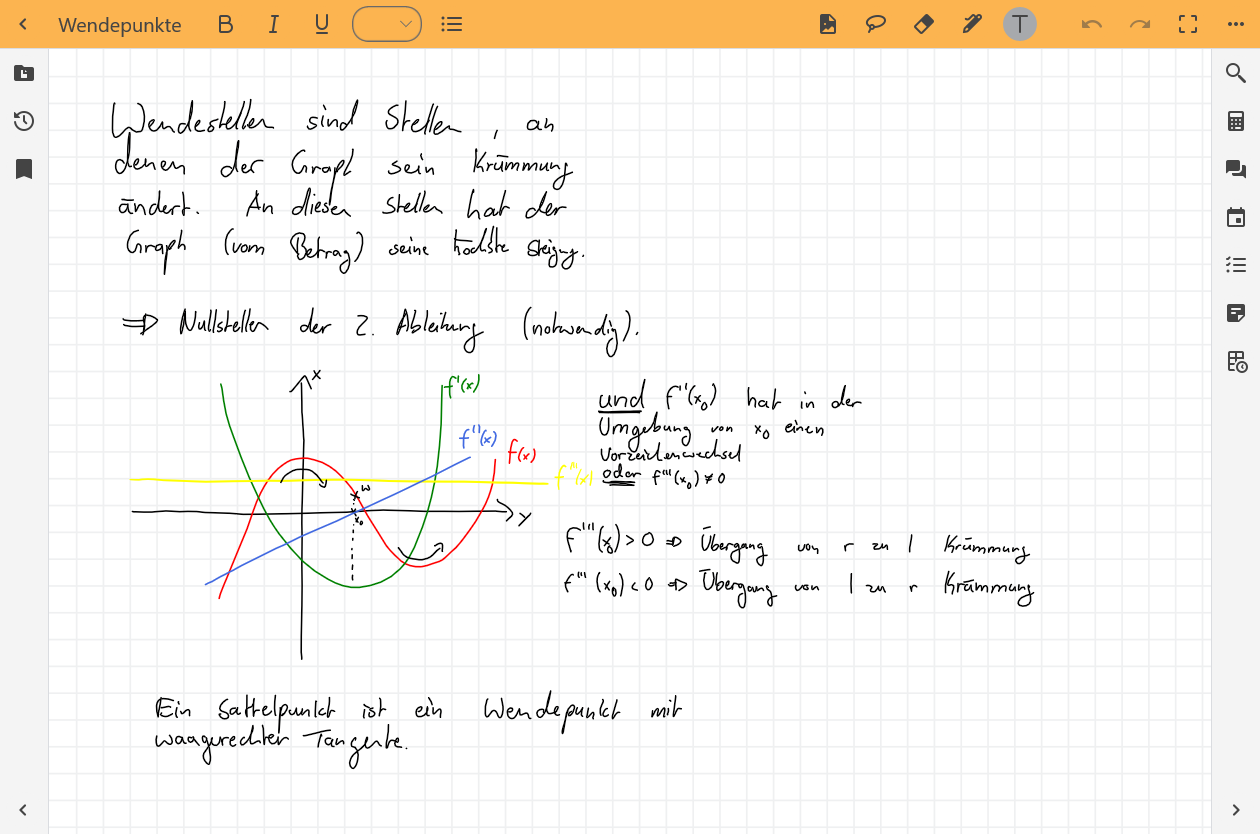 Wendepunkte B I U T
Wendestellen sind Stellen, an
denen der Graph sein Krümmung
ändert. An diesen Stellen hat der
Graph (vom Betrag) seine höchste Steigung.
⇒ Nullstellen der 2. Ableitung (notwendig).
x
f'(x)
f''(x)
f(x)
f'''(x)
w
x₀
y
und f''(x₀) hat in der
Umgebung von x₀ einen
Vorzeichenwechsel
oder f'''(x₀) ≠ 0
f'''(x₀) > 0 ⇒ Übergang von r zu l Krümmung
f'''(x₀) < 0 ⇒ Übergang von l zu r Krümmung
Ein Sattelpunkt ist ein Wendepunkt mit
waagerechter Tangente.